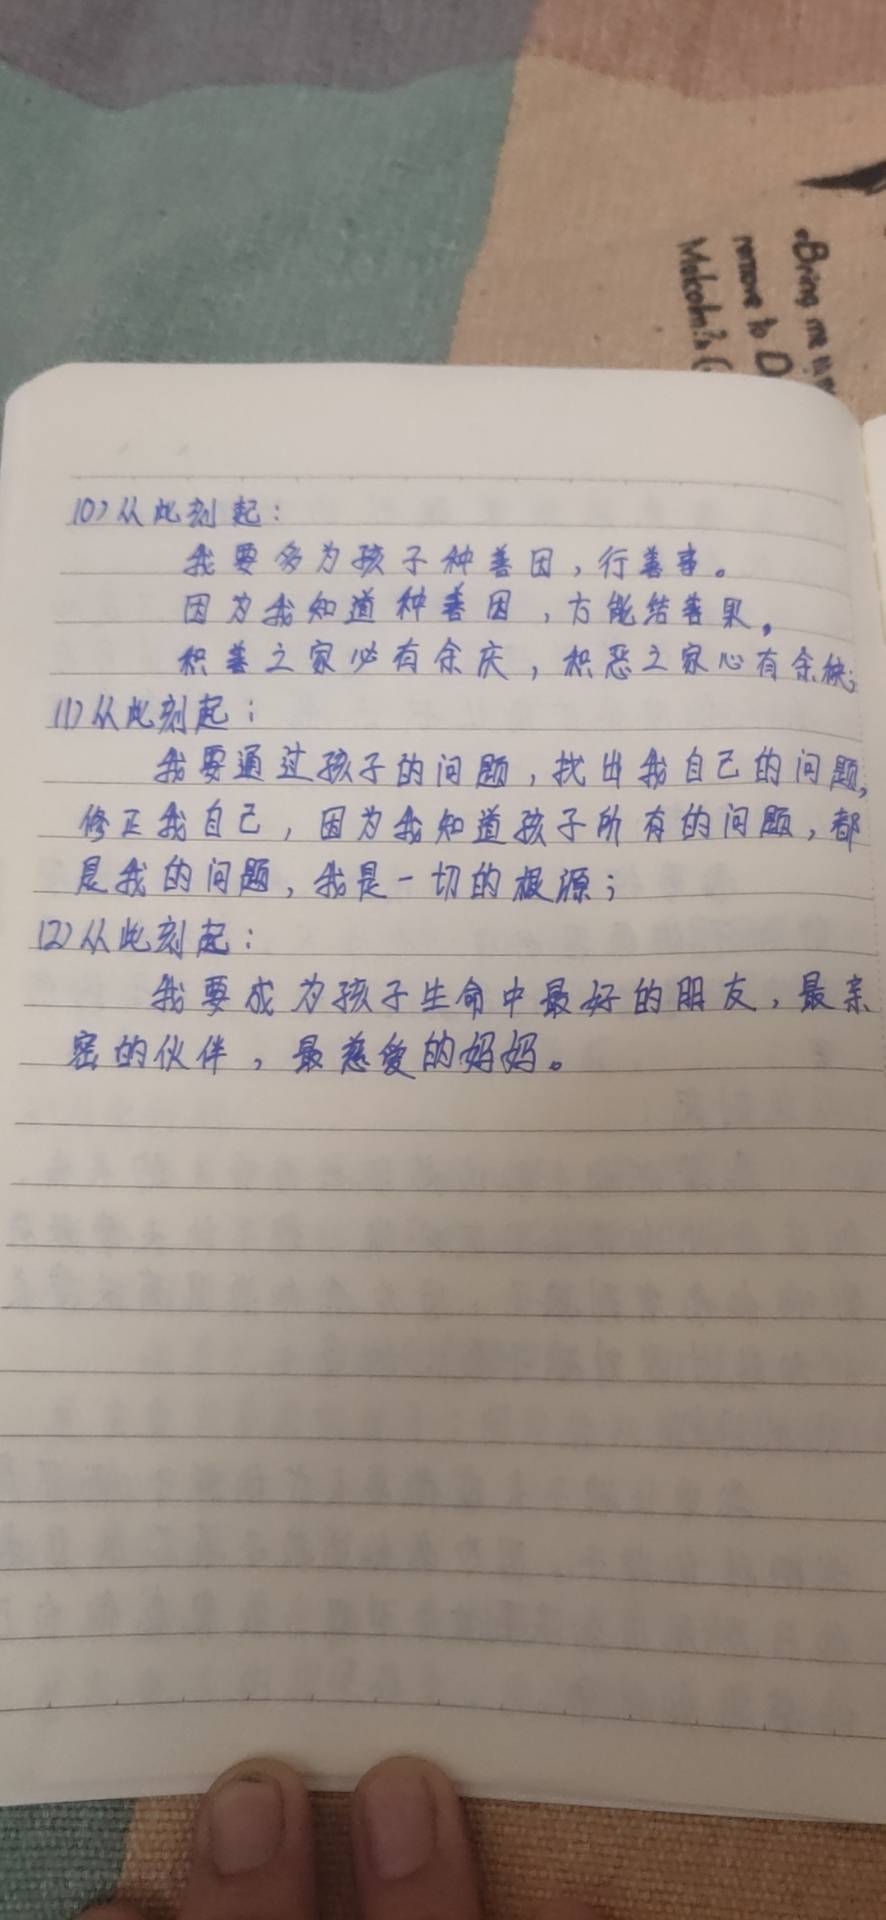 «Bring me
remove to D
Malcolm?» (
10)从此刻起:
我要多为孩子种善因,行善事。
因为我知道种善因,方能结善果。
积善之家必有余庆,积恶之家必有余秧;
11)从此刻起:
我要通过孩子的问题,找出我自己的问题,
修正我自己,因为我知道孩子所有的问题,都
是我的问题,我是一切的根源;
12)从此刻起:
我要成为孩子生命中最好的朋友,最亲
密的伙伴,最慈爱的妈妈。